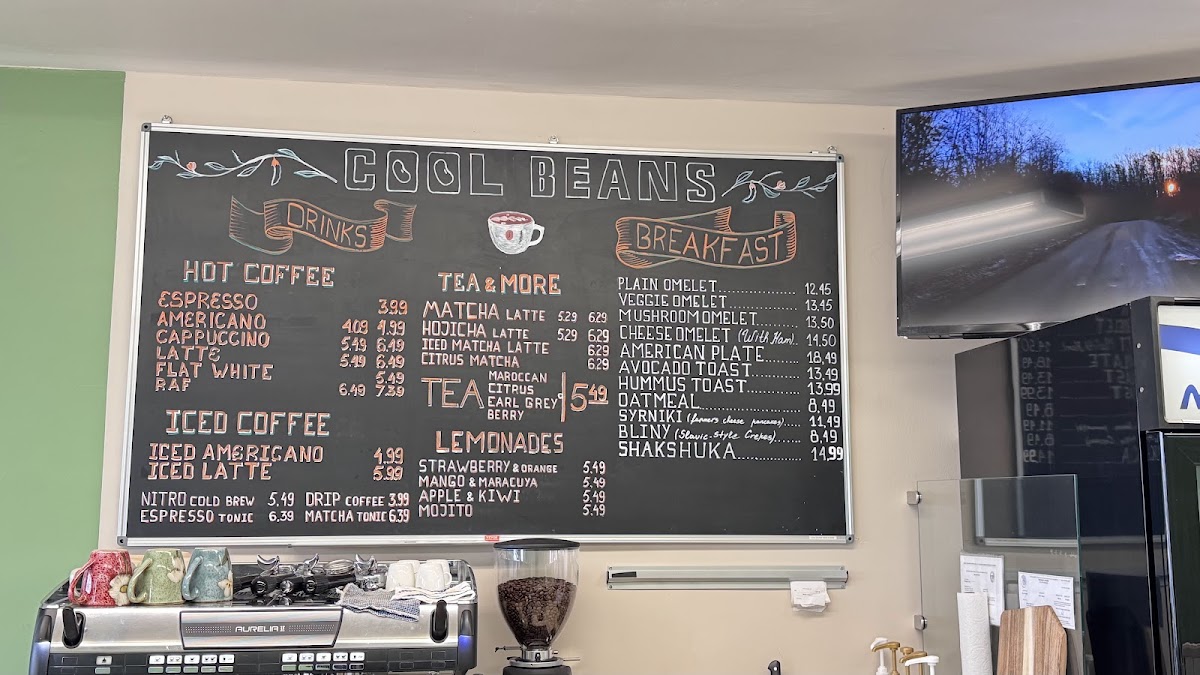 COOL BEANS
DRINKS
HOT COFFEE
ESPRESSO 3.99
AMERICANO 4.09 4.99
CAPPUCCINO 5.49 6.49
LATTE 5.49 6.49
FLAT WHITE 5.49
RAF 6.49 7.39
ICED COFFEE
ICED AMERICANO 4.99
ICED LATTE 5.99
NITRO COLD BREW 5,49 DRIP COFFEE 3.99
ESPRESSO TONIC 6.39 MATCHA TONIC 6.39
TEA & MORE
MATCHA LATTE 5.29 6.29
HOJICHA LATTE 5.29 6.29
ICED MATCHA LATTE 6.29
CITRUS MATCHA 6.29
TEA
MAROCCAN
CITRUS
EARL GREY
BERRY
5.49
LEMONADES
STRAWBERRY & ORANGE 5.49
MANGO & MARACUYA 5.49
APPLE & KIWI 5.49
MOJITO 5.49
BREAKFAST
PLAIN OMELET................ 12.45
VEGGIE OMELET................ 13,45
MUSHROOM OMELET......... 13,50
CHEESE OMELET (With Ham).. 14,50
AMERICAN PLATE........ 18,49
AVOCADO TOAST.......... 13,49
HUMMUS TOAST........... 13.99
OATMEAL..................... 8,49
SYRNIKI (farmers cheese pancakes)...... 11,49
BLINY (Slavic-Style Crepes)...... 8,49
SHAKSHUKA.............. 14,99
AURELIA II